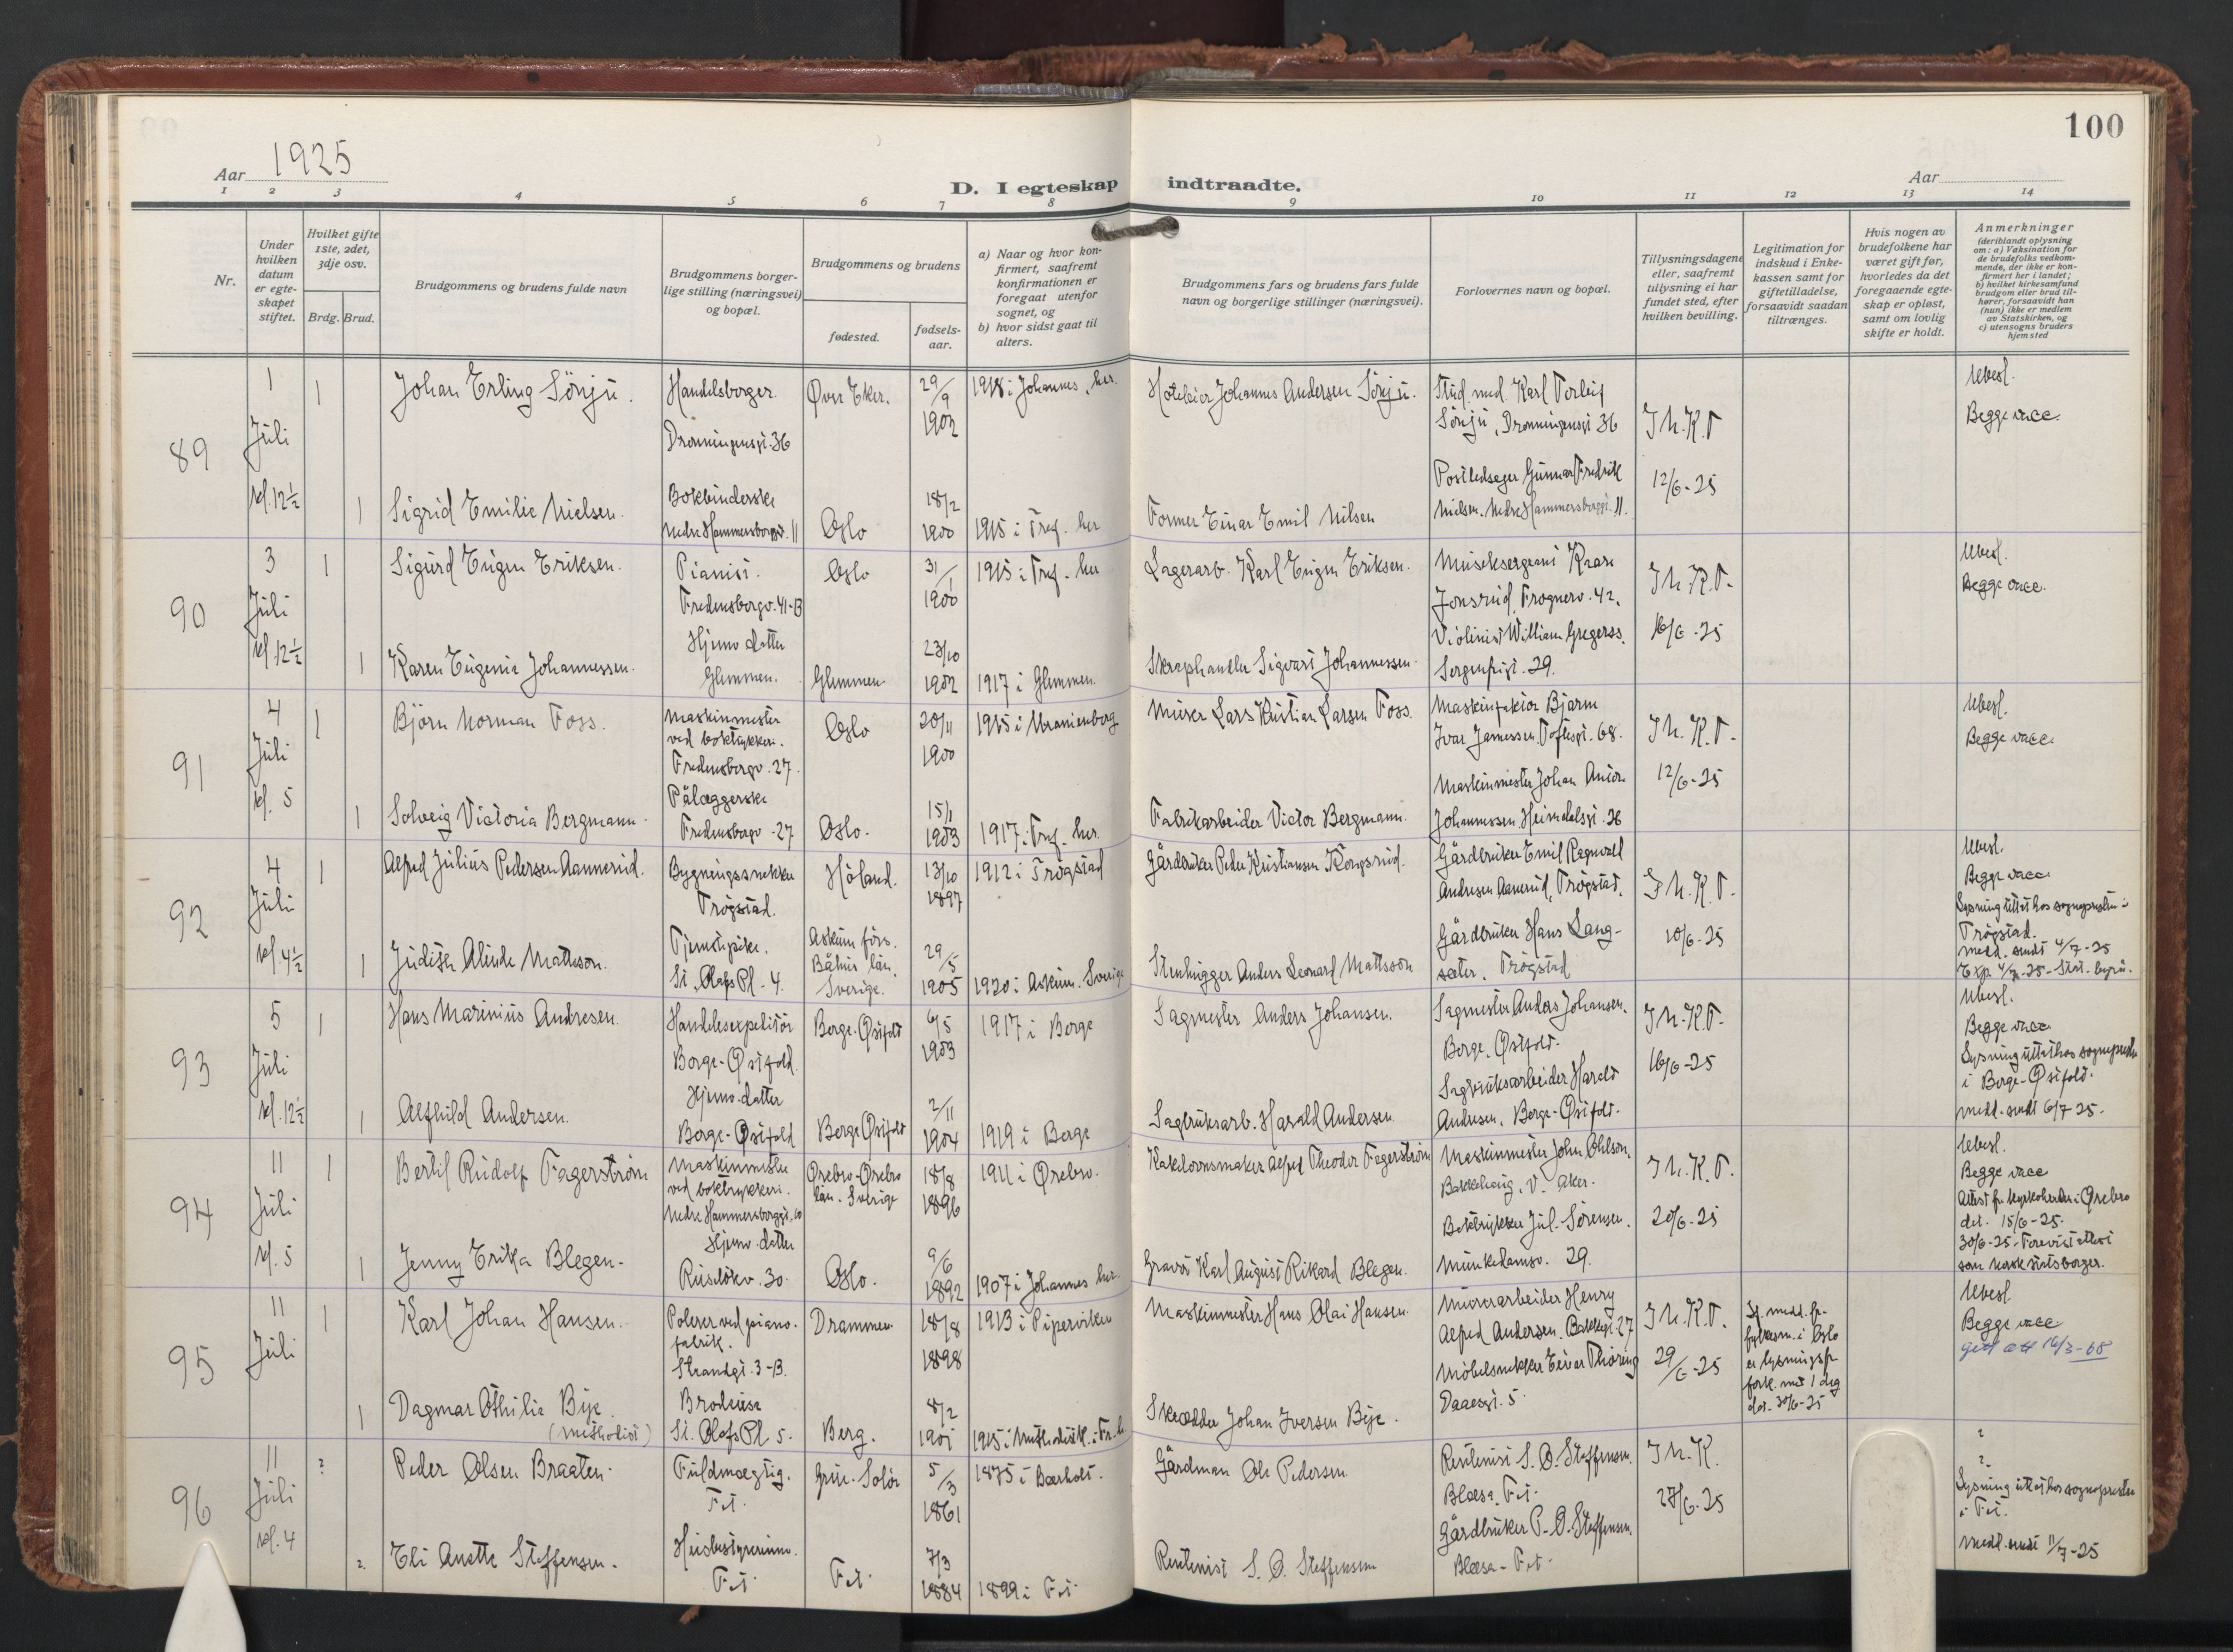 100
Aar 1925
D. I egteskap indtraadte.
Aar
1 2 3 4 5 6 7 8 9 10 11 12 13 14
Nr.
Under hvilken datum er egteskapet stiftet.
Hvilket gifte 1ste, 2det, 3dje osv.
Brdg. Brud.
Brudgommens og brudens fulde navn
Brudgommens borgerlige stilling (næringsvei) og bopæl.
Brudgommens og brudens
fødested.
fødselsaar.
a) Naar og hvor konfirmert, saafremt konfirmationen er foregaat utenfor sognet, og
b) hvor sidst gaat til alters.
Brudgommens fars og brudens fars fulde navn og borgerlige stillinger (næringsvei).
Forlovernes navn og bopæl.
Tillysningsdagene eller, saafremt tillysning ei har fundet sted, efter hvilken bevilling.
Legitimation for indskud i Enkekassen samt for giftetilladelse, forsaavidt saadan tiltrænges.
Hvis nogen av brudefolkene har været gift før, hvorledes da det foregaaende egteskap er opløst, samt om lovlig skifte er holdt.
Anmerkninger
(deriblandt oplysning om: a) Vaksination for de brudefolks vedkommende, der ikke er konfirmert her i landet; b) hvilket kirkesamfund brudgom eller brud tilhører, forsaavidt han (hun) ikke er medlem av Statskirken, og c) utensogns bruders hjemsted
89
1 Juli kl. 12½
1 Johan Erling Sönju.
Handelsborger.
Dronningensgt. 36
Øvre Eker.
29/9 1902
1918 i Johannes, her.
Hoteleier Johannes Andersen Sönju.
Stud. med. Karl Torleif
Sönju, Dronningensgt 36
J. N. K. T
12/6-25
Ubesl.
Begge vacc.
1 Sigrid Emilie Nielsen.
Bokbinderske
Nedre Hammersborggt. 11
Oslo
18/2 1900
1915 i Tref. her
Former Einar Emil Nilsen
Postledsager Gunnar Fredrik
Nielsen. Nedre Hammersborggt. 11.
90
3 Juli kl. 12½
1 Sigurd Eugen Eriksen.
Pianist.
Fredensborgv. 41-B
Oslo
31/1 1900
1915 i Tref. her
Lagerarb. Karl Eugen Eriksen.
Musiksergeant Kaare
Jonsrud, Frognerv. 42.
J. N. K. T.
16/6-25
Ubesl.
Begge vacc.
1 Karen Eugenie Johannessen.
Hjemv. datter
Glemmen.
Glemmen.
23/10 1902
1917 i Glemmen.
Skraphandler Sigvart Johannessen.
Violinist William Gregerss.
Sorgenfrigt. 29.
91
4 Juli kl. 5
1 Björn Norman Foss.
Maskinmester
ved boktrykkeri.
Fredensborgv. 27.
Oslo
20/11 1900
1915 i Uranienborg
Murer Lars Kristian Larsen Foss.
Bjarne
Ivar Jamessen. Toftesgt. 68.
J. N. K. T.
12/6-25
Ubesl.
Begge vacc.
1 Solveig Victoria Bergmann.
Pålæggerske
Fredensborgv. 27
Oslo.
15/1 1903
1917 i Tref. her.
Fabrikarbeider Victor Bergmann.
Maskinmester Johan Anton
Johannessen Heimdalsgt. 26
92
4 Juli kl. 4½
1 Alfred Julius Pedersen Aannerud.
Bygningssnekker
Trøgstad.
Høland.
13/10 1897
1912 i Trøgstad
Gårdbruker Peder Kristiansen Kongsrud.
Gårdbruker Emil Ragnvald
Andresen Aanerud, Trøgstad.
J. N. K. T.
10/6-25
Ubesl.
Begge vacc.
Lysning uttat hos sogneprästen i
Trøgstad.
medd. sendt 4/7-25
1 Judith Alinde Matteson.
Tjenestepike.
St. Olafs Pl. 4.
Askum förs.
Båhus län.
Sverige.
29/5 1905
1920 i Askum. Sverige
Stenhugger Anders Leonard Mattsson
Gårdbruker Hans Langsæter. Trøgstad
93
5 Juli kl. 12½
1 Hans Marinius Andresen.
Handelsexpeditör
Borge-Østfold.
Borge. Østfold
6/5 1903
1917 i Borge
Sagmester Anders Johansen.
Sagmester Anders Johansen.
Borge. Østfold.
J. N. K. T.
16/6-25
Ubesl.
Begge vacc.
Lysning uttat hos sogneprästen
i Borge-Østfold.
medd. sendt 6/7 25.
1 Alfhild Andersen.
Hjemv. datter
Borge-Østfold
Borge Østfold
2/11 1904
1919 i Borge
Sagbruksarb. Harald Andersen.
Sagbruksarbeider Harald
Andresen. Borge-Østfold.
94
11 Juli kl. 5
1 Bertil Rudolf Fagerström
Maskinmester
ved boktrykkeri.
Nedre Hammersborggt. 10
Ørebro-Ørebro
län. Sverige
18/8 1896
1911 i Ørebro.
Kakelovnsmaker Alfred Theodor Fagerström
Maskinmester John Ohlson.
Bakkehaug, V. Aker.
J. N. K. T.
20/6-25
Ubesl.
Begge vacc
Attest fr. kyrkoherden i Ørebro
dat. 15/6-25.
30/6-25. Forevist attest
som norsk statsborger.
1 Jenny Erika Blegen.
Hjemv. datter
Ruselökv. 30.
Oslo.
9/6 1892
1907 i Johannes her.
Gravør Karl August Rikard Blegen.
Boktrykker Jul. Sörensen.
Munkedamsv. 29.
95
11 Juli
1 Karl Johan Hansen.
Polerer ved pianofabrik.
Strandgt. 3-B.
Drammen
18/8 1898
1913 i Piperviken
Maskinmester Hans Olai Hansen.
Murerarbeider Henry
Alfred Andersen. Bakkegt. 27
J. N. K. T.
29/6-25
i Oslo
er lysningsfr.
fork. med 1 dag
dat. 30/6-25
Ubesl.
Begge vacc
gitt att 16/3-68
1 Dagmar Othilie Bije
(methodist)
Broderise
St. Olafs Pl. 5.
Berg.
8/2 1901
Skrædder Johan Iversen Bije.
Möbelsnekker Einar Thoring
Daaesgt. 5.
96
11 Juli kl. 4
2 Peder Olsen Braaten.
Fuldmægtig.
Fet.
Grue. Solör
5/3 1861
1875 i
Gårdman Ole Pedersen
Rentenist S. O. Steffensen.
Blæsa. Fet.
J. N. K.
27/6-25
?
?
Lysning uttat hos sogneprästen
i Fet.
medd. sendt 11/7-25
2. Eli Anette Steffensen.
Husbestyrerinne.
Fet.
Fet.
7/3 1884
1899 i Fet.
Rentenist S. O. Steffensen
Gårdbruker P. O. Steffensen.
Blæsa-Fet.